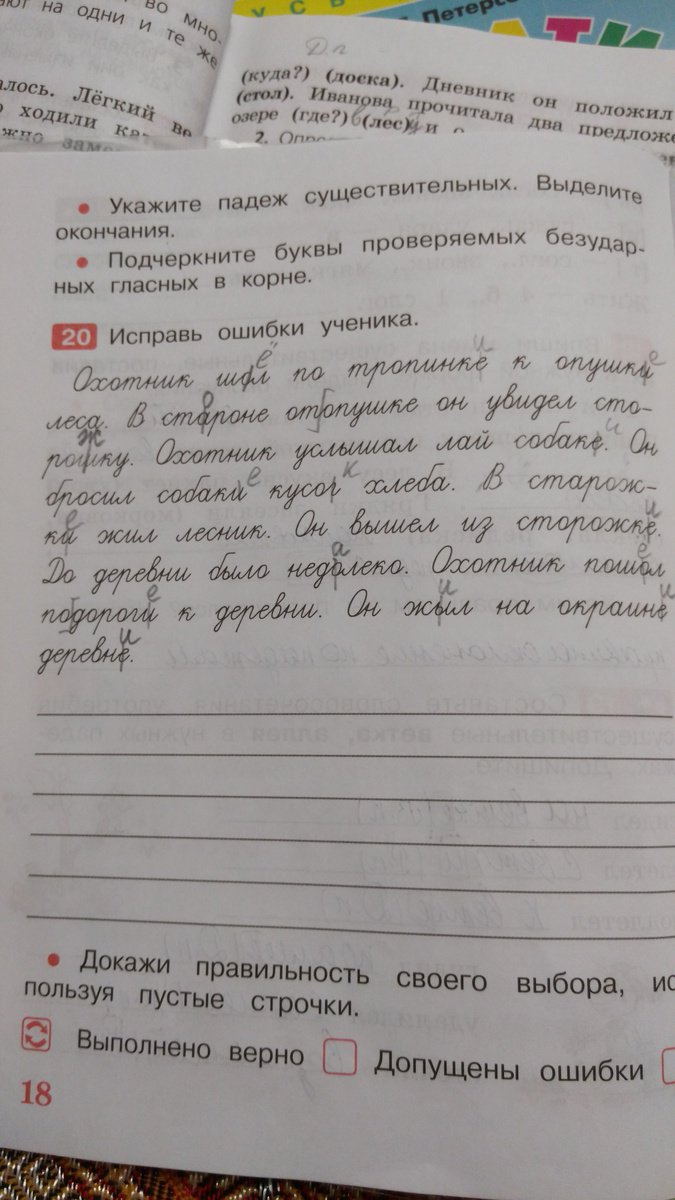 во мно-
ют на одни и те же
алось. Лёгкий ве
ходили
У С
Петерс
Д п
(куда?) (доска). Дневник он положил
(стол). Иванова прочитала два предложе
озере (где?) (лес) и
2.
• Укажите падеж существительных. Выделите
окончания.
• Подчеркните буквы проверяемых безудар-
ных гласных в корне.
20 Исправь ошибки ученика.
Охотник шол по тропинке к опушки
леса. В староне отопушке он увидел сто-
рошку. Охотник услышал лай собаке. Он
бросил собаки кусог хлеба. В старож-
ки жил лесник. Он вышел из сторожке.
До деревни было недолеко. Охотник пошол
подороги к деревни. Он жыл на окраине
деревне.
• Докажи правильность своего выбора, ис
пользуя пустые строчки.
Выполнено верно Допущены ошибки
18